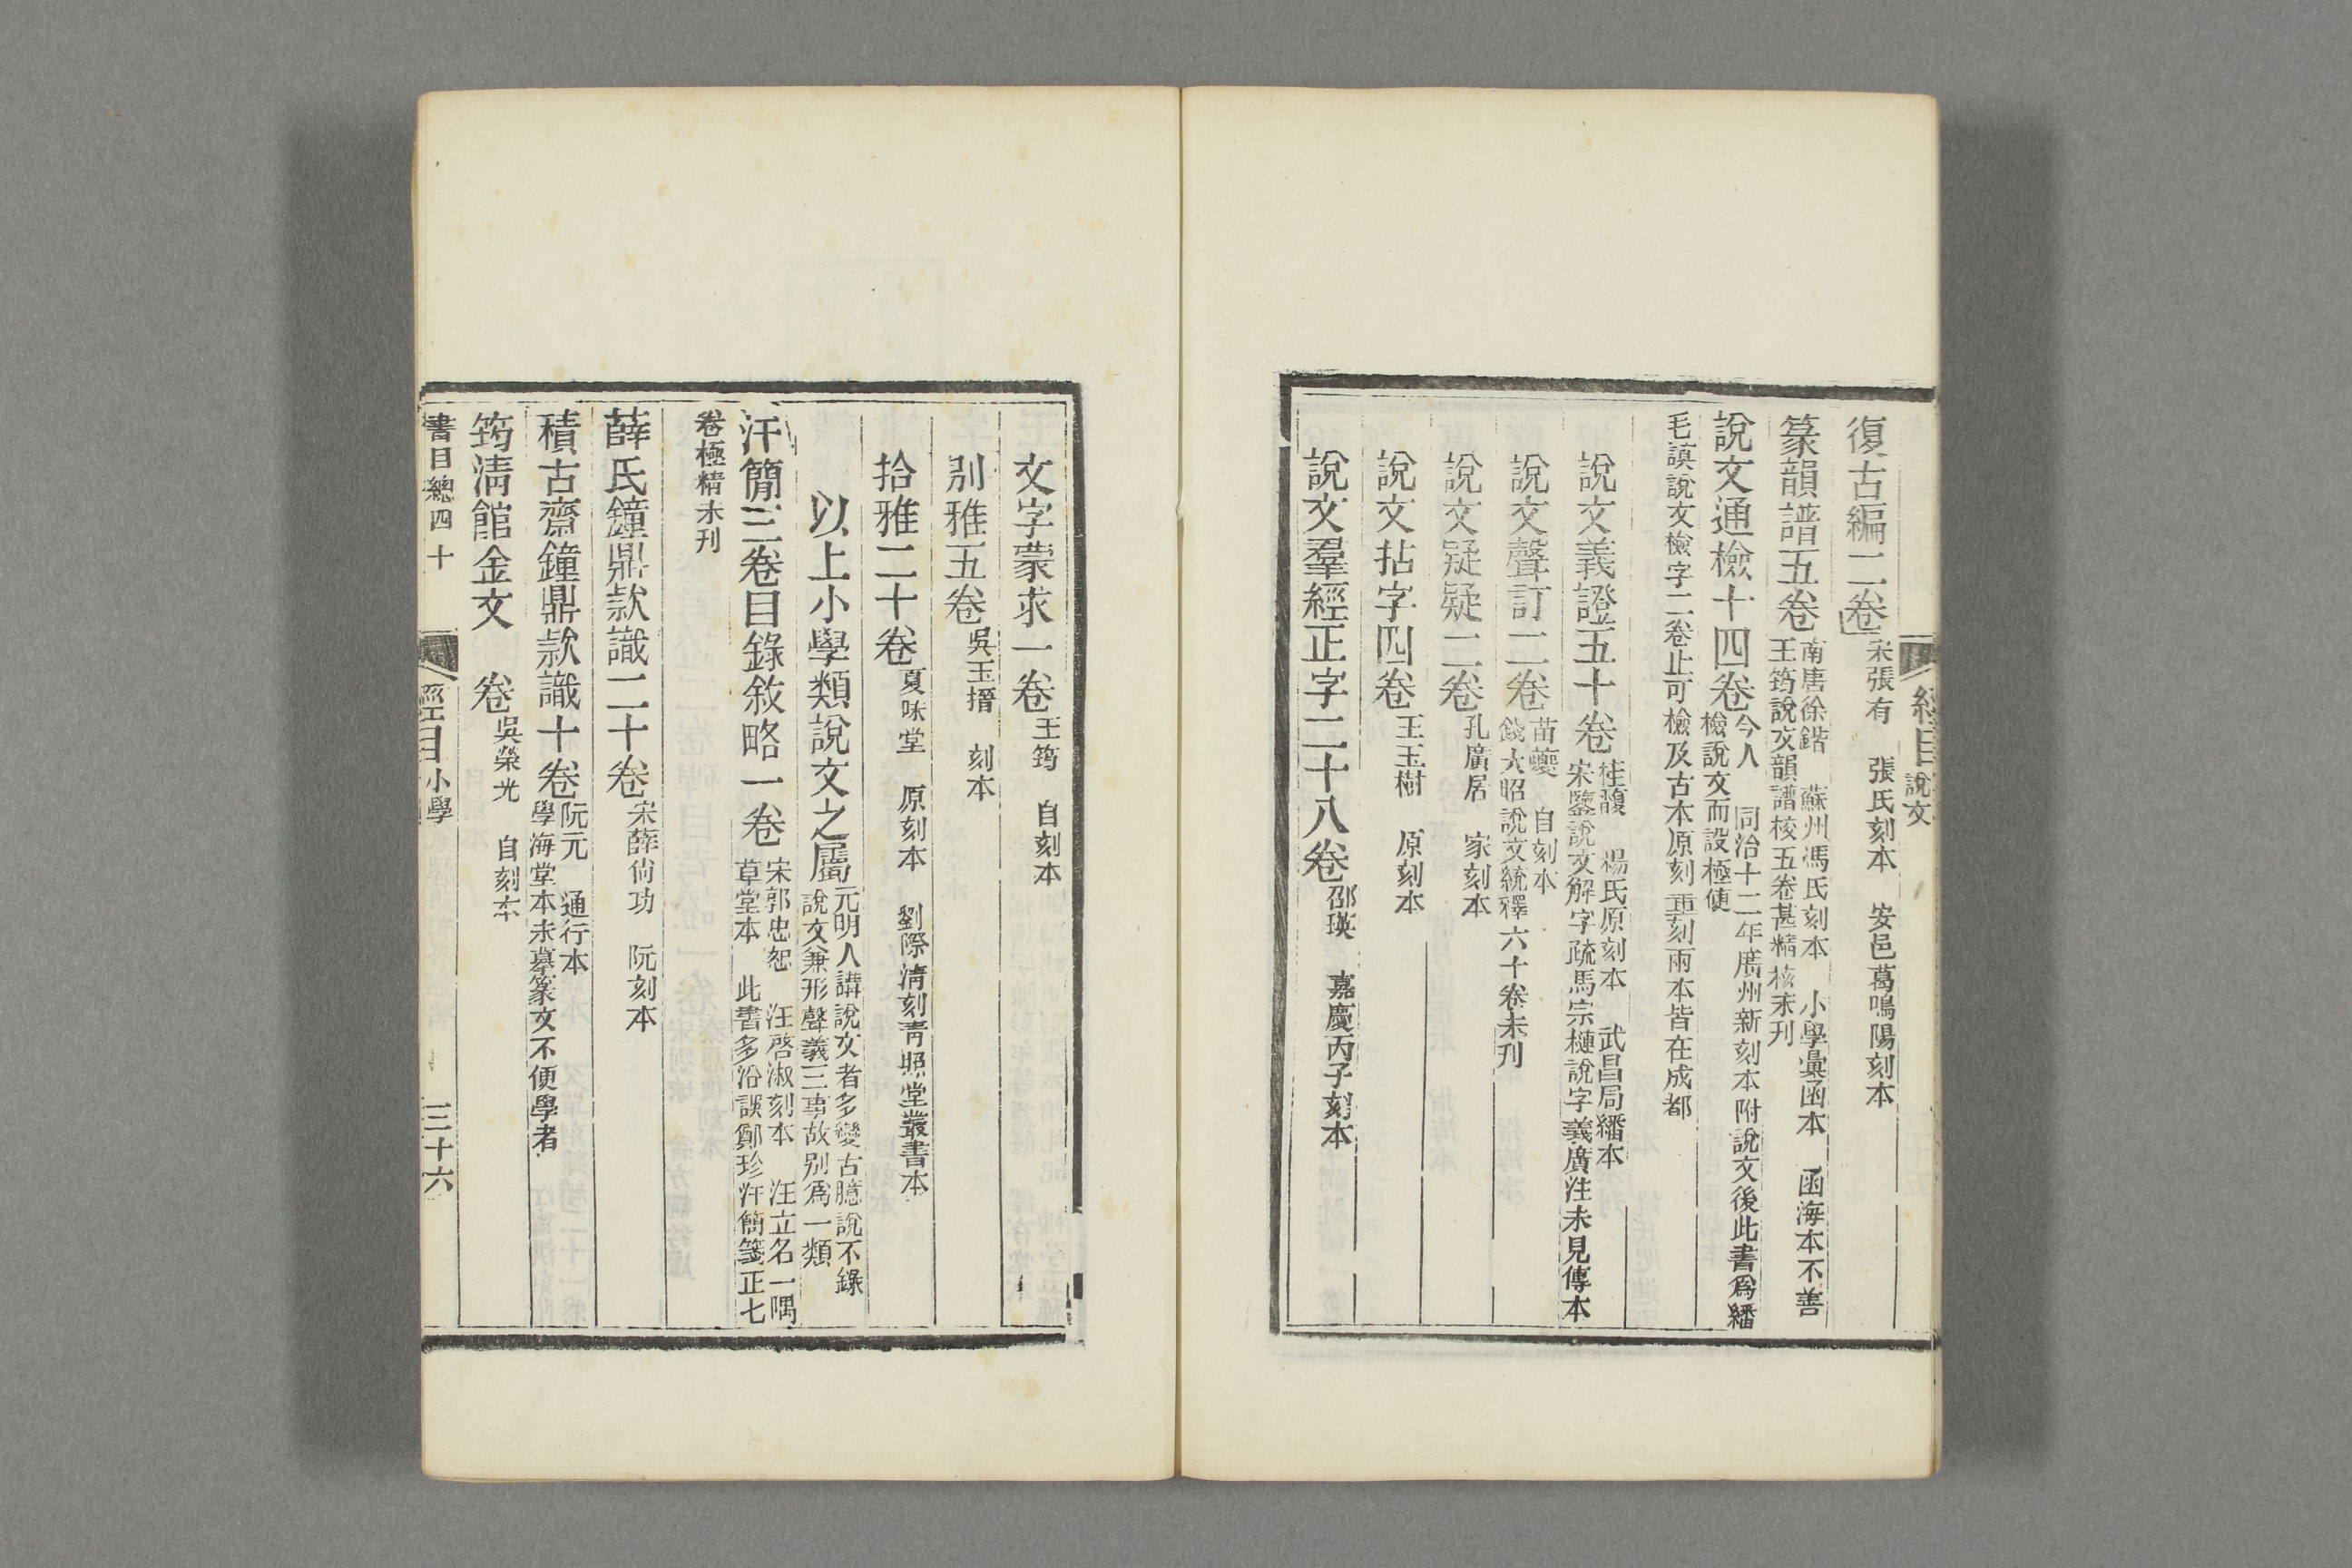 經目
說文
復古編二卷宋張有　張氏刻本　安邑葛鳴陽刻本
篆韻譜五卷南唐徐鍇　蘇州馮氏刻本　小學彙函本　函海本不善
王筠說文韻譜校五卷甚精核未刊
說文通檢十四卷今人　同治十二年廣州新刻本附說文後此書爲繙
檢說文而設極便
毛謨說文檢字二卷止可檢及古本原刻重刻兩本皆在成都
說文義證五十卷桂馥　楊氏原刻本　武昌局繙本
宋鑒說文解字疏馬宗槤說字義廣注未見傳本
說文聲訂二卷苗夔　自刻本
錢大昭說文統釋六十卷未刊
說文疑疑二卷孔廣居　家刻本
說文拈字四卷王玉樹　原刻本
說文羣經正字二十八卷邵瑛　嘉慶丙子刻本
文字蒙求一卷王筠　自刻本
別雅五卷吳玉搢　刻本
拾雅二十卷夏味堂　原刻本　劉際淸刻靑照堂叢書本
以上小學類說文之屬元明人講說文者多變古臆說不錄
說文兼形聲義三事故別爲一類
汗簡三卷目錄敘略一卷宋郭忠恕　汪啓淑刻本　汪立名一隅
草堂本　此書多沿誤鄭珍汗簡箋正七
卷極精未刊
薛氏鐘鼎款識二十卷宋薛尙功　阮刻本
積古齋鐘鼎款識十卷阮元　通行本
學海堂本未摹篆文不便學者
筠淸館金文　卷吳榮光　自刻本
書目總四十
經目
小學
三十六